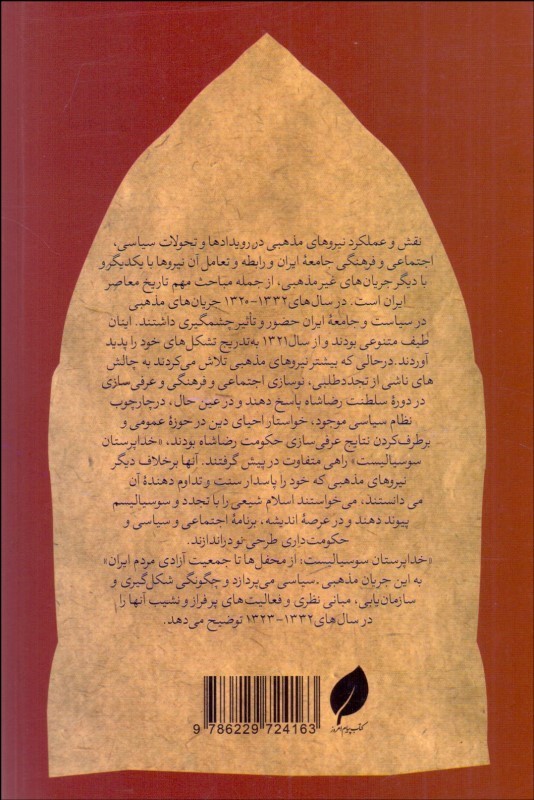 نقش و عملکرد نیروهای مذهبی در رویدادها و تحولات سیاسی،
اجتماعی و فرهنگی جامعهٔ ایران و رابطه و تعامل آن نیروها با یکدیگر و
با دیگر جریان‌های غیرمذهبی، از جمله مباحث مهم تاریخ معاصر
ایران است. در سال‌های ۱۳۳۲-۱۳۲۰ جریان‌های مذهبی
در سیاست و جامعهٔ ایران حضور و تأثیر چشمگیری داشتند. اینان
طیف متنوعی بودند و از سال ۱۳۲۱ به‌تدریج تشکل‌های خود را پدید
آوردند. درحالی که بیشتر نیروهای مذهبی تلاش می‌کردند به چالش
های ناشی از تجددطلبی، نوسازی اجتماعی و فرهنگی و عرفی‌سازی
در دورهٔ سلطنت رضاشاه پاسخ دهند و در عین حال، درچارچوب
نظام سیاسی موجود، خواستار احیای دین در حوزهٔ عمومی و
برطرف‌کردن نتایج عرفی‌سازی حکومت رضاشاه بودند، «خداپرستان
سوسیالیست» راهی متفاوت در پیش گرفتند. آنها برخلاف دیگر
نیروهای مذهبی که خود را پاسدار سنت و تداوم دهندهٔ آن
می دانستند، می‌خواستند اسلام شیعی را با تجدد و سوسیالیسم
پیوند دهند و در عرصهٔ اندیشه، برنامهٔ اجتماعی و سیاسی و
حکومت‌داری طرحی نو دراندازند.
«خداپرستان سوسیالیست: از محفل‌ها تا جمعیت آزادی مردم ایران»
به این جریان مذهبی ـ سیاسی می‌پردازد و چگونگی شکل‌گیری و
سازمان‌یابی، مبانی نظری و فعالیت‌های پرفراز و نشیب آنها را
در سال‌های ۱۳۳۲-۱۳۲۳ توضیح می‌دهد.
کتاب پیام امروز
9 786229 724163